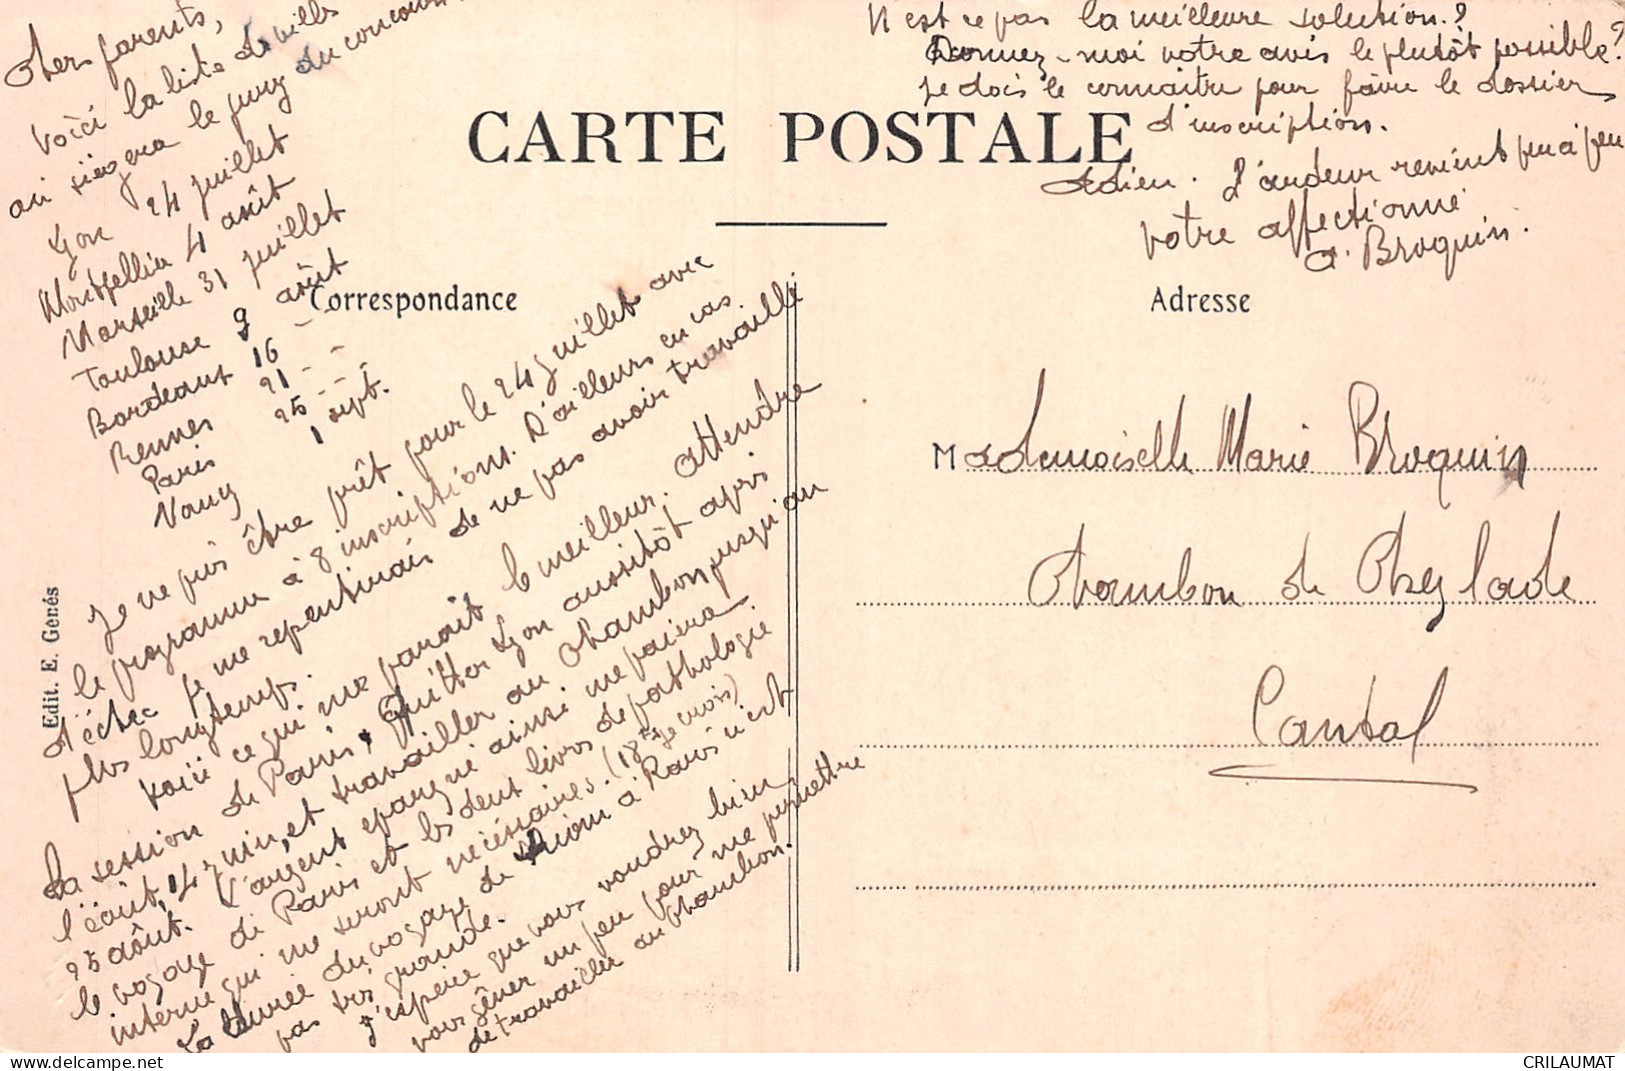 Chers parents,
Voici la liste des villes
où siègera le jury du concours
Lyon 24 juillet
Montpellier 4 août
Marseille 31 juillet
Toulouse 9 août
Bordeaux 16 –
Rennes 21 – –
Paris 25 – – –
Nancy 1 sept.
Je ne puis être prêt pour le 24 juillet avec
le programme à 8 inscriptions. D'ailleurs en cas
d'échec je me repentirais de ne pas avoir travaillé
plus longtemps.
Voici ce qui me paraît le meilleur. Attendre
la session de Paris, quitter Lyon aussitôt après
l'écrit, 14 juin, et travailler au Chambon jusqu'au
25 août. L'argent épargné ainsi me paiera
le voyage de Paris et les dent livres de pathologie
interne qui me seront nécessaires. (18 je crois)
La durée du voyage de Riom à Paris n'est
pas très grande.
J'espère que vous voudrez bien
vous gêner un peu pour me permettre
de travailler au Chambon.
N'est ce pas la meilleure solution.?
Donnez-moi votre avis le plutôt possible?
je dois le connaitre pour faire le dossier
d'inscription.
Adieu. L'ardeur revient peu à peu
Votre affectionné
A. Broquin.
CARTE POSTALE
Correspondance
Adresse
Mademoiselle Marie Broquin
Chambon de Cheylade
Cantal
Edit. E. Genés
CRILAUMAT